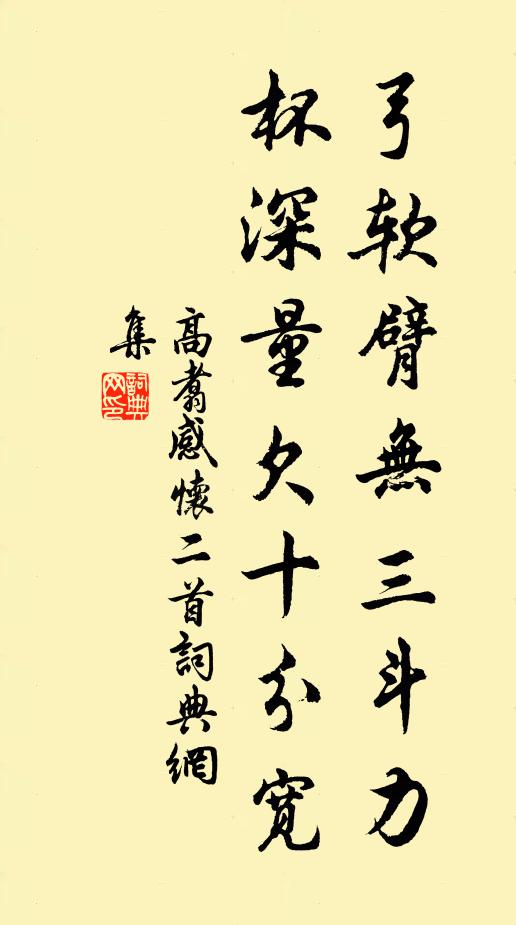 弓軟臂無三斗力
杯深量欠十分寬
高翥感懷二首詞典網
集
詞典
网印